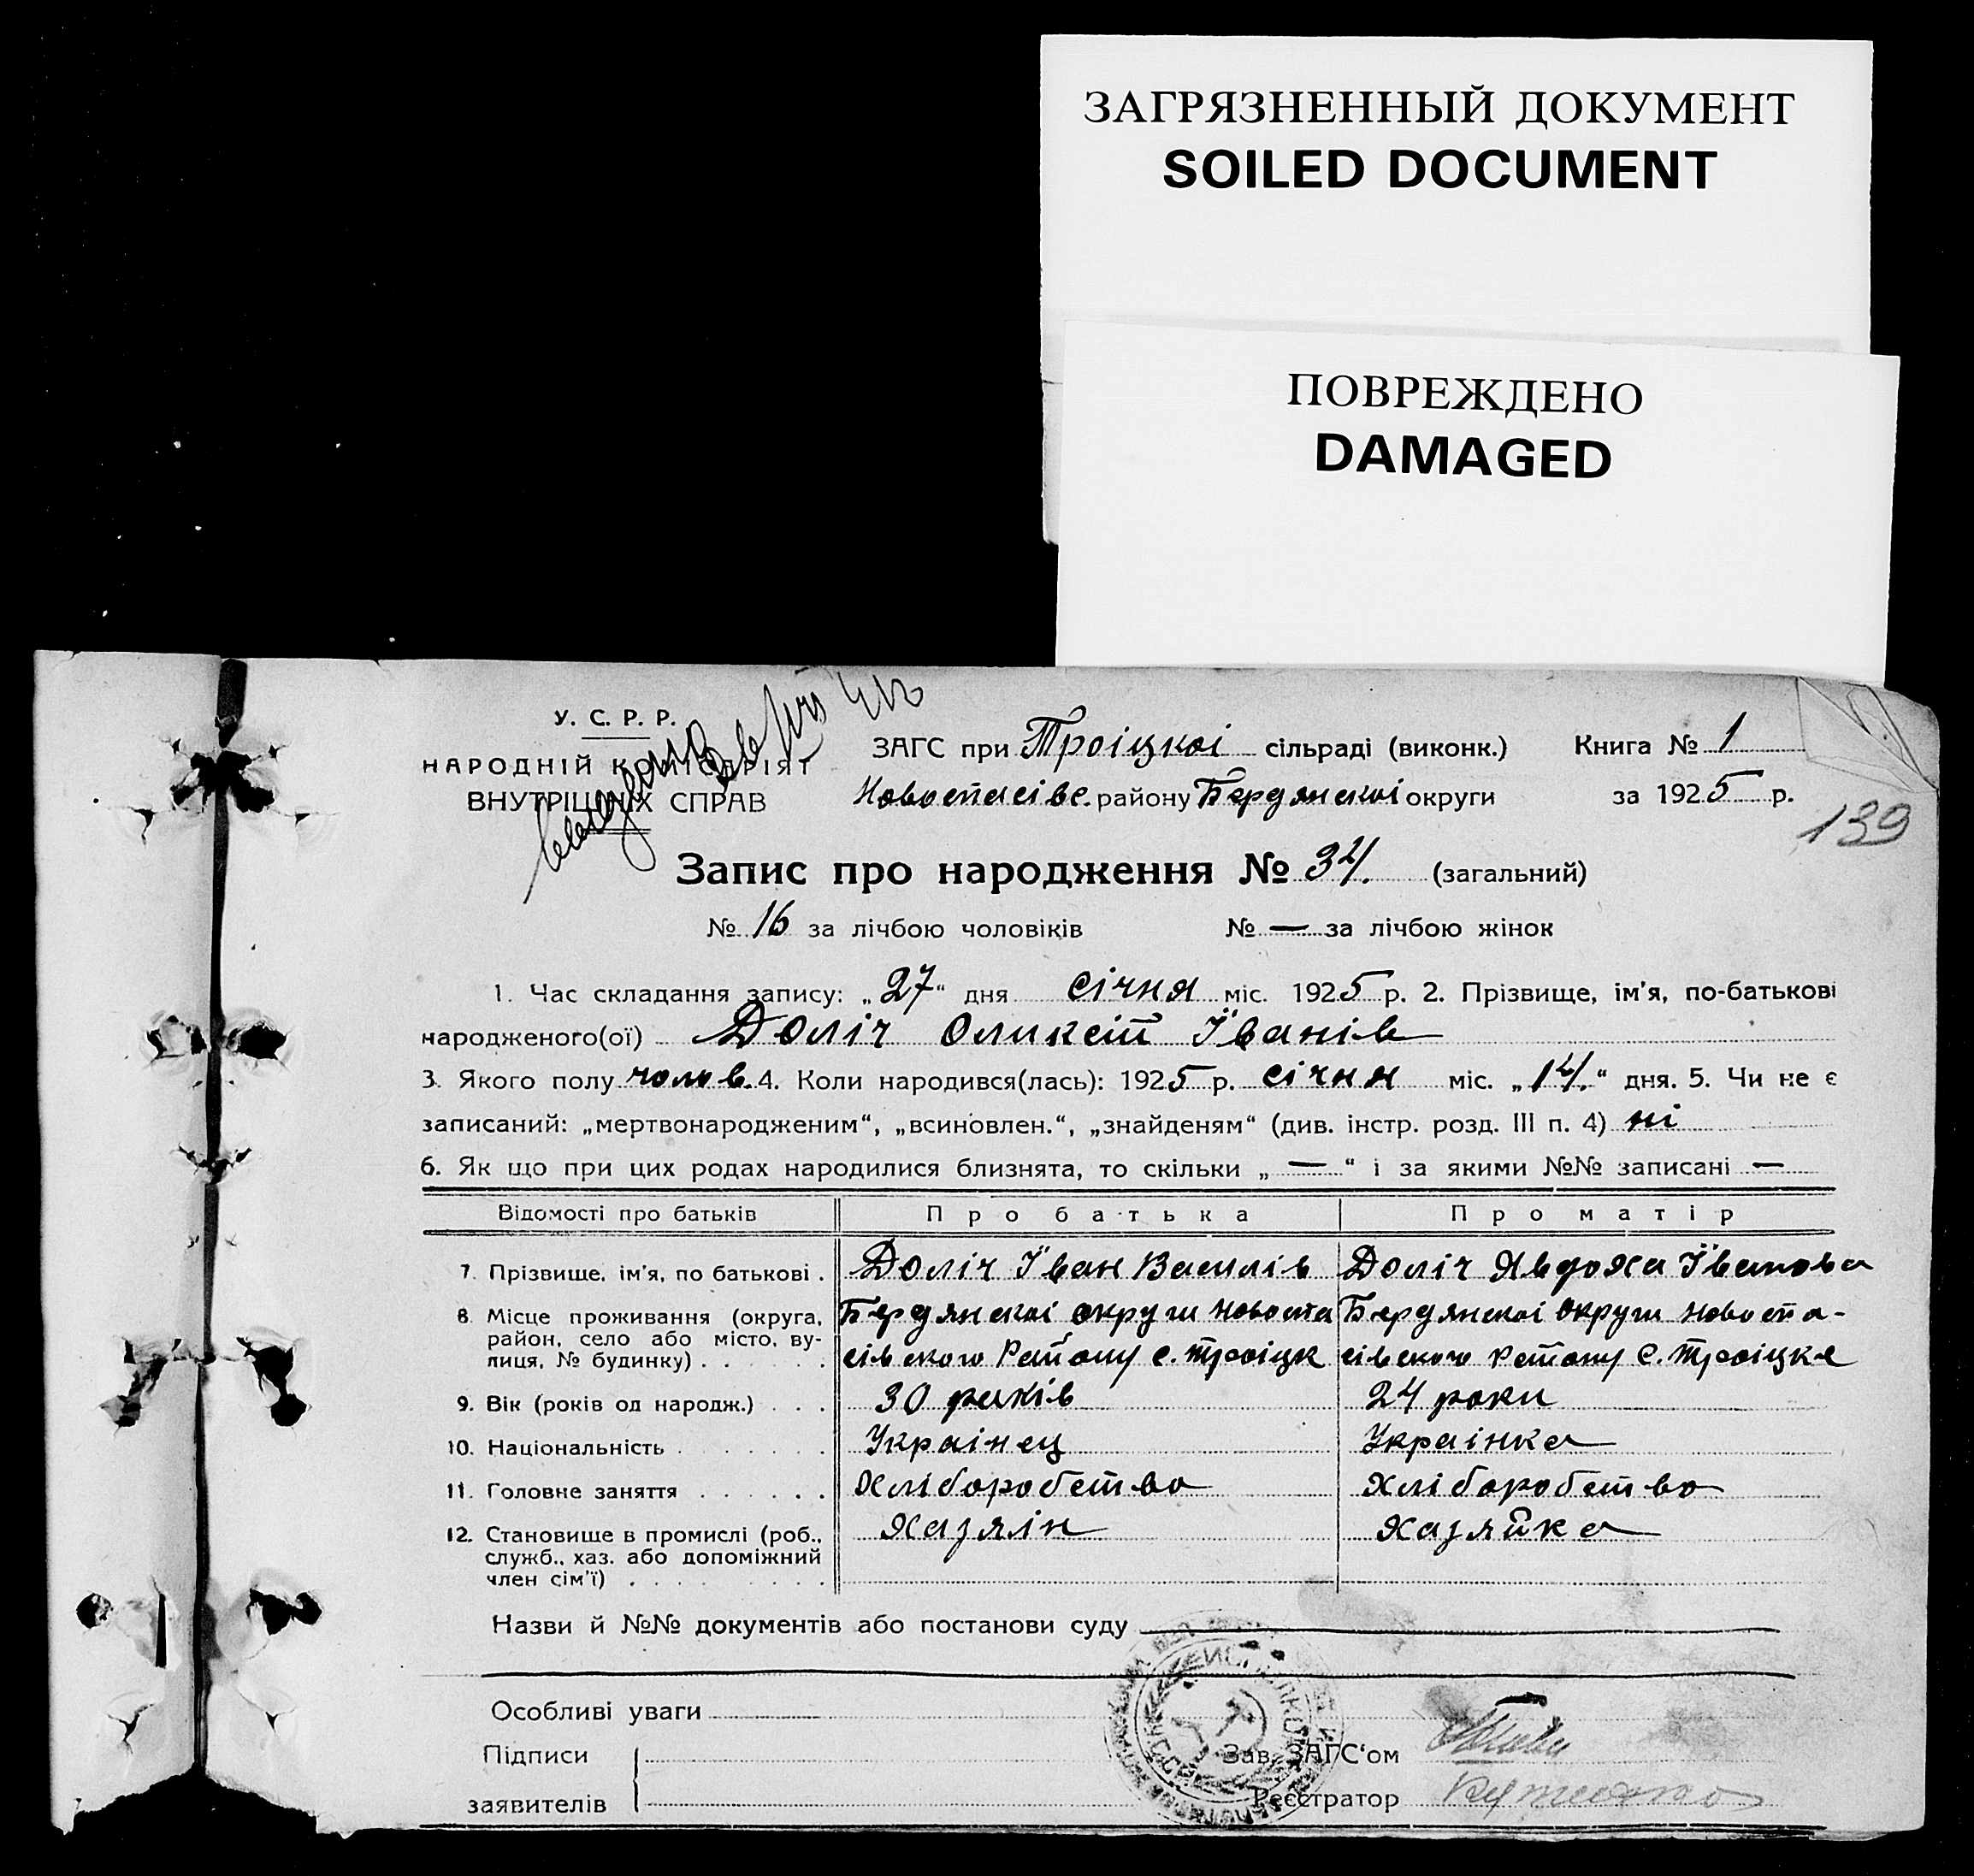 ЗАГРЯЗНЕННЫЙ ДОКУМЕНТ
SOILED DOCUMENT
ПОВРЕЖДЕНО
DAMAGED
У. С. Р. Р.
НАРОДНІЙ КОМІСАРІЯТ
ВНУТРІШНІХ СПРАВ
ЗАГС при Троіцкоі сільраді (виконк.) Книга № 1
Новоспасівс. району Бердянскоі округи за 1925 р.
139
Запис про народження № 34. (загальний)
№ 16 за лічбою чоловіків № — за лічбою жінок
1. Час складання запису: „27“ дня січня міс. 1925 р. 2. Прізвище, ім'я, по-батькові
народженого(ої) Доліч Оликсій Іванів
3. Якого полу чолов. 4. Коли народився(лась): 1925 р. січня міс. „14.“ дня. 5. Чи не є
записаний: „мертвонародженим“, „всиновлен.“, „знайденям“ (див. інстр. розд. III п. 4) ні
6. Як що при цих родах народилися близнята, то скільки „ — “ і за якими №№ записані —
Відомості про батьків Про батька Про матір
7. Прізвище, ім'я, по батькові . Доліч Іван Василів Доліч Явдоха Іванова
8. Місце проживання (округа, Бердянскоі округи Новоспа Бердянскоі округи Новоспа-
район, село або місто, ву-
лиця, № будинку) . . . . . . сівского Району с. Троіцк сівского Району с. Троіцке
9. Вік (років од народж.) . . . 30 років 24 роки
10. Національність . . . . . . . Украінец Украінка
11. Головне заняття . . . . . . Хліборобство Хліборобство
12. Становище в промислі (роб., Хазяін Хазяйка
служб., хаз. або допоміжний
член сім'ї) . . . . . . . . .
Назви й №№ документів або постанови суду
Особливі уваги
Підписи Зав. ЗАГС'ом
заявителів Реєстратор